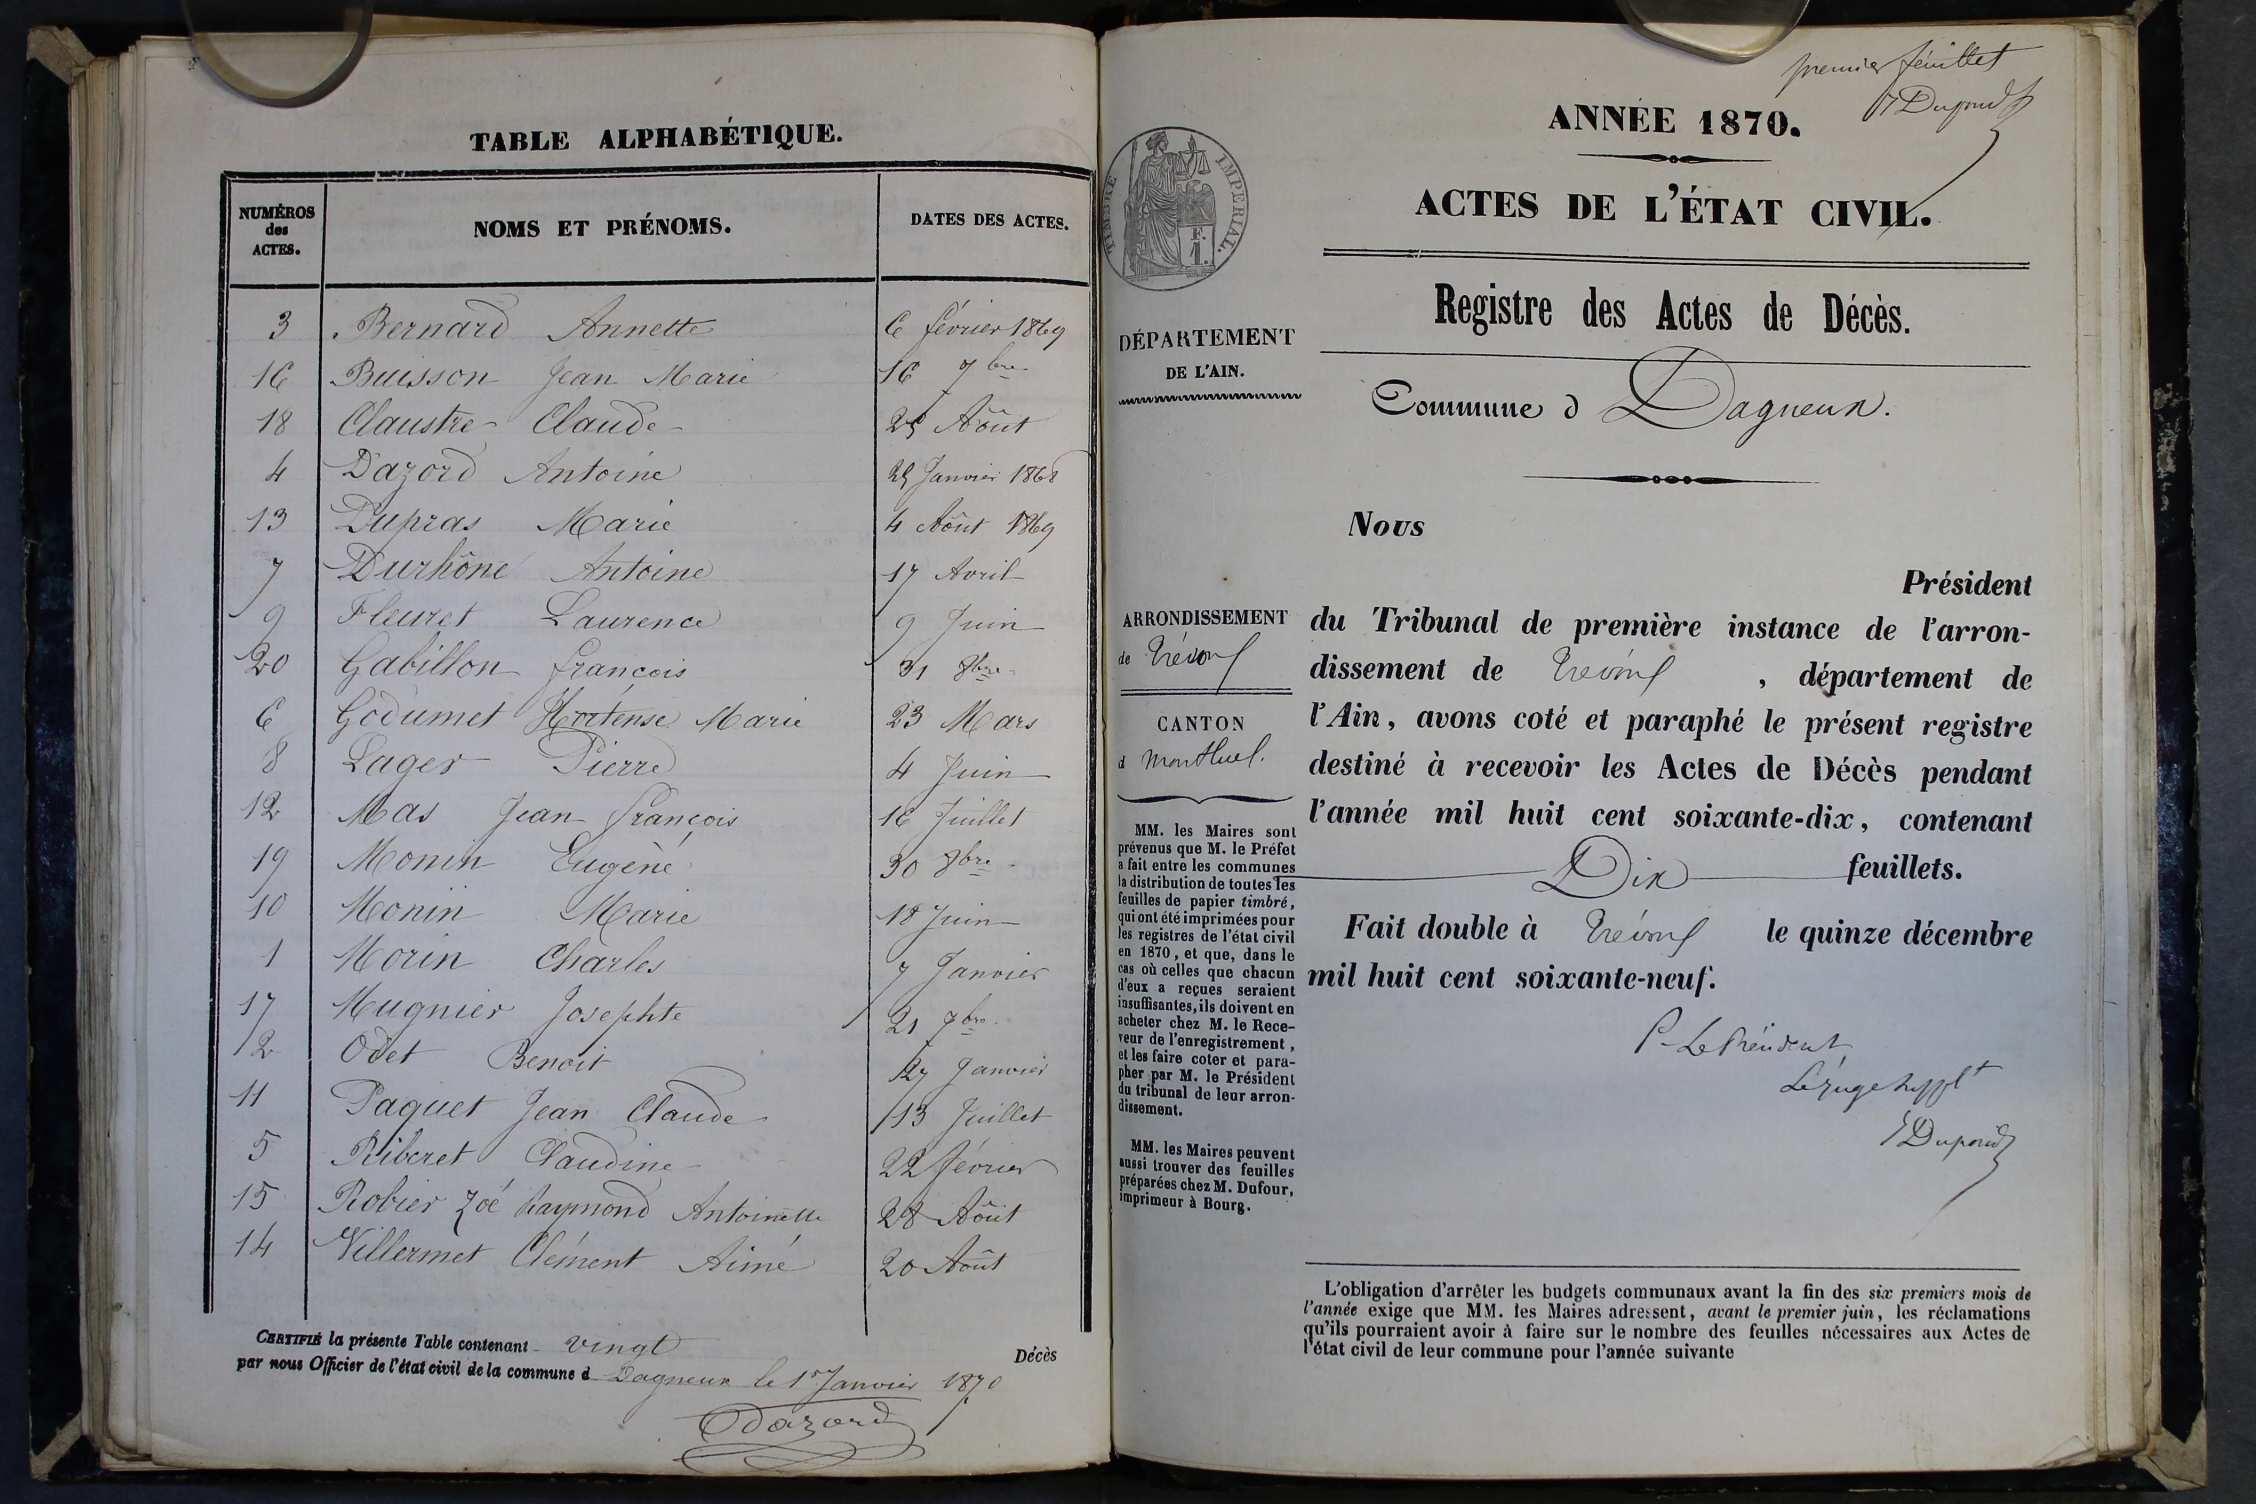 TABLE ALPHABÉTIQUE.
NUMÉROS des ACTES. NOMS ET PRÉNOMS. DATES DES ACTES.
3 Bernard Annette 6 février 1869
16 Buisson Jean Marie 16 7bre
18 Claustre Claude 25 Août
4 Dazord Antoine Janvier 1868
13 Dupras Marie 4 Août 1869
7 Durhône Antoine 17 Avril
9 Fleuret Laurence 9 Juin
20 Gabillon françois 31 8bre
6 Godumet Hortense Marie 23 Mars
8 Lager Pierre 4 Juin
12 Mas Jean françois 16 Juillet
19 Monin Eugène 30 8bre
10 Monin Marie 18 Juin
1 Morin Charles 7 Janvier
17 Mugnier Josephte 21 7bre
2 Odet Benoit 27 Janvier
11 Paquet Jean Claude 13 Juillet
5 Riberet Claudine 22 février
15 Robier Zoé Raymond Antoinette 28 Août
14 Villermet Clément Aimé 20 Août
CERTIFIÉ la présente Table contenant vingt Décès
par nous Officier de l'état civil de la commune d Dagneux le 1r Janvier 1870
Odazord
premier feuillet
Dupond
ANNÉE 1870.
ACTES DE L'ÉTAT CIVIL.
TIMBRE IMPÉRIAL.
F.
1.
Registre des Actes de Décès.
DÉPARTEMENT
DE L'AIN.
Commune d Dagneux.
Nous
Président
ARRONDISSEMENT
de Trévoux
du Tribunal de première instance de l'arron-
dissement de Trévoux , département de
CANTON
d Montluel.
l'Ain, avons coté et paraphé le présent registre
destiné à recevoir les Actes de Décès pendant
l'année mil huit cent soixante-dix, contenant
Dix feuillets.
Fait double à Trévoux le quinze décembre
mil huit cent soixante-neuf.
P. Le Président
Le Juge suppt
Dupond
MM. les Maires sont
prévenus que M. le Préfet
a fait entre les communes
la distribution de toutes les
feuilles de papier timbré,
qui ont été imprimées pour
les registres de l'état civil
en 1870, et que, dans le
cas où celles que chacun
d'eux a reçues seraient
insuffisantes, ils doivent en
acheter chez M. le Rece-
veur de l'enregistrement,
et les faire coter et para-
pher par M. le Président
du tribunal de leur arron-
dissement.
MM. les Maires peuvent
aussi trouver des feuilles
préparées chez M. Dufour,
imprimeur à Bourg.
L'obligation d'arrêter les budgets communaux avant la fin des six premiers mois de
l'année exige que MM. les Maires adressent, avant le premier juin, les réclamations
qu'ils pourraient avoir à faire sur le nombre des feuilles nécessaires aux Actes de
l'état civil de leur commune pour l'année suivante